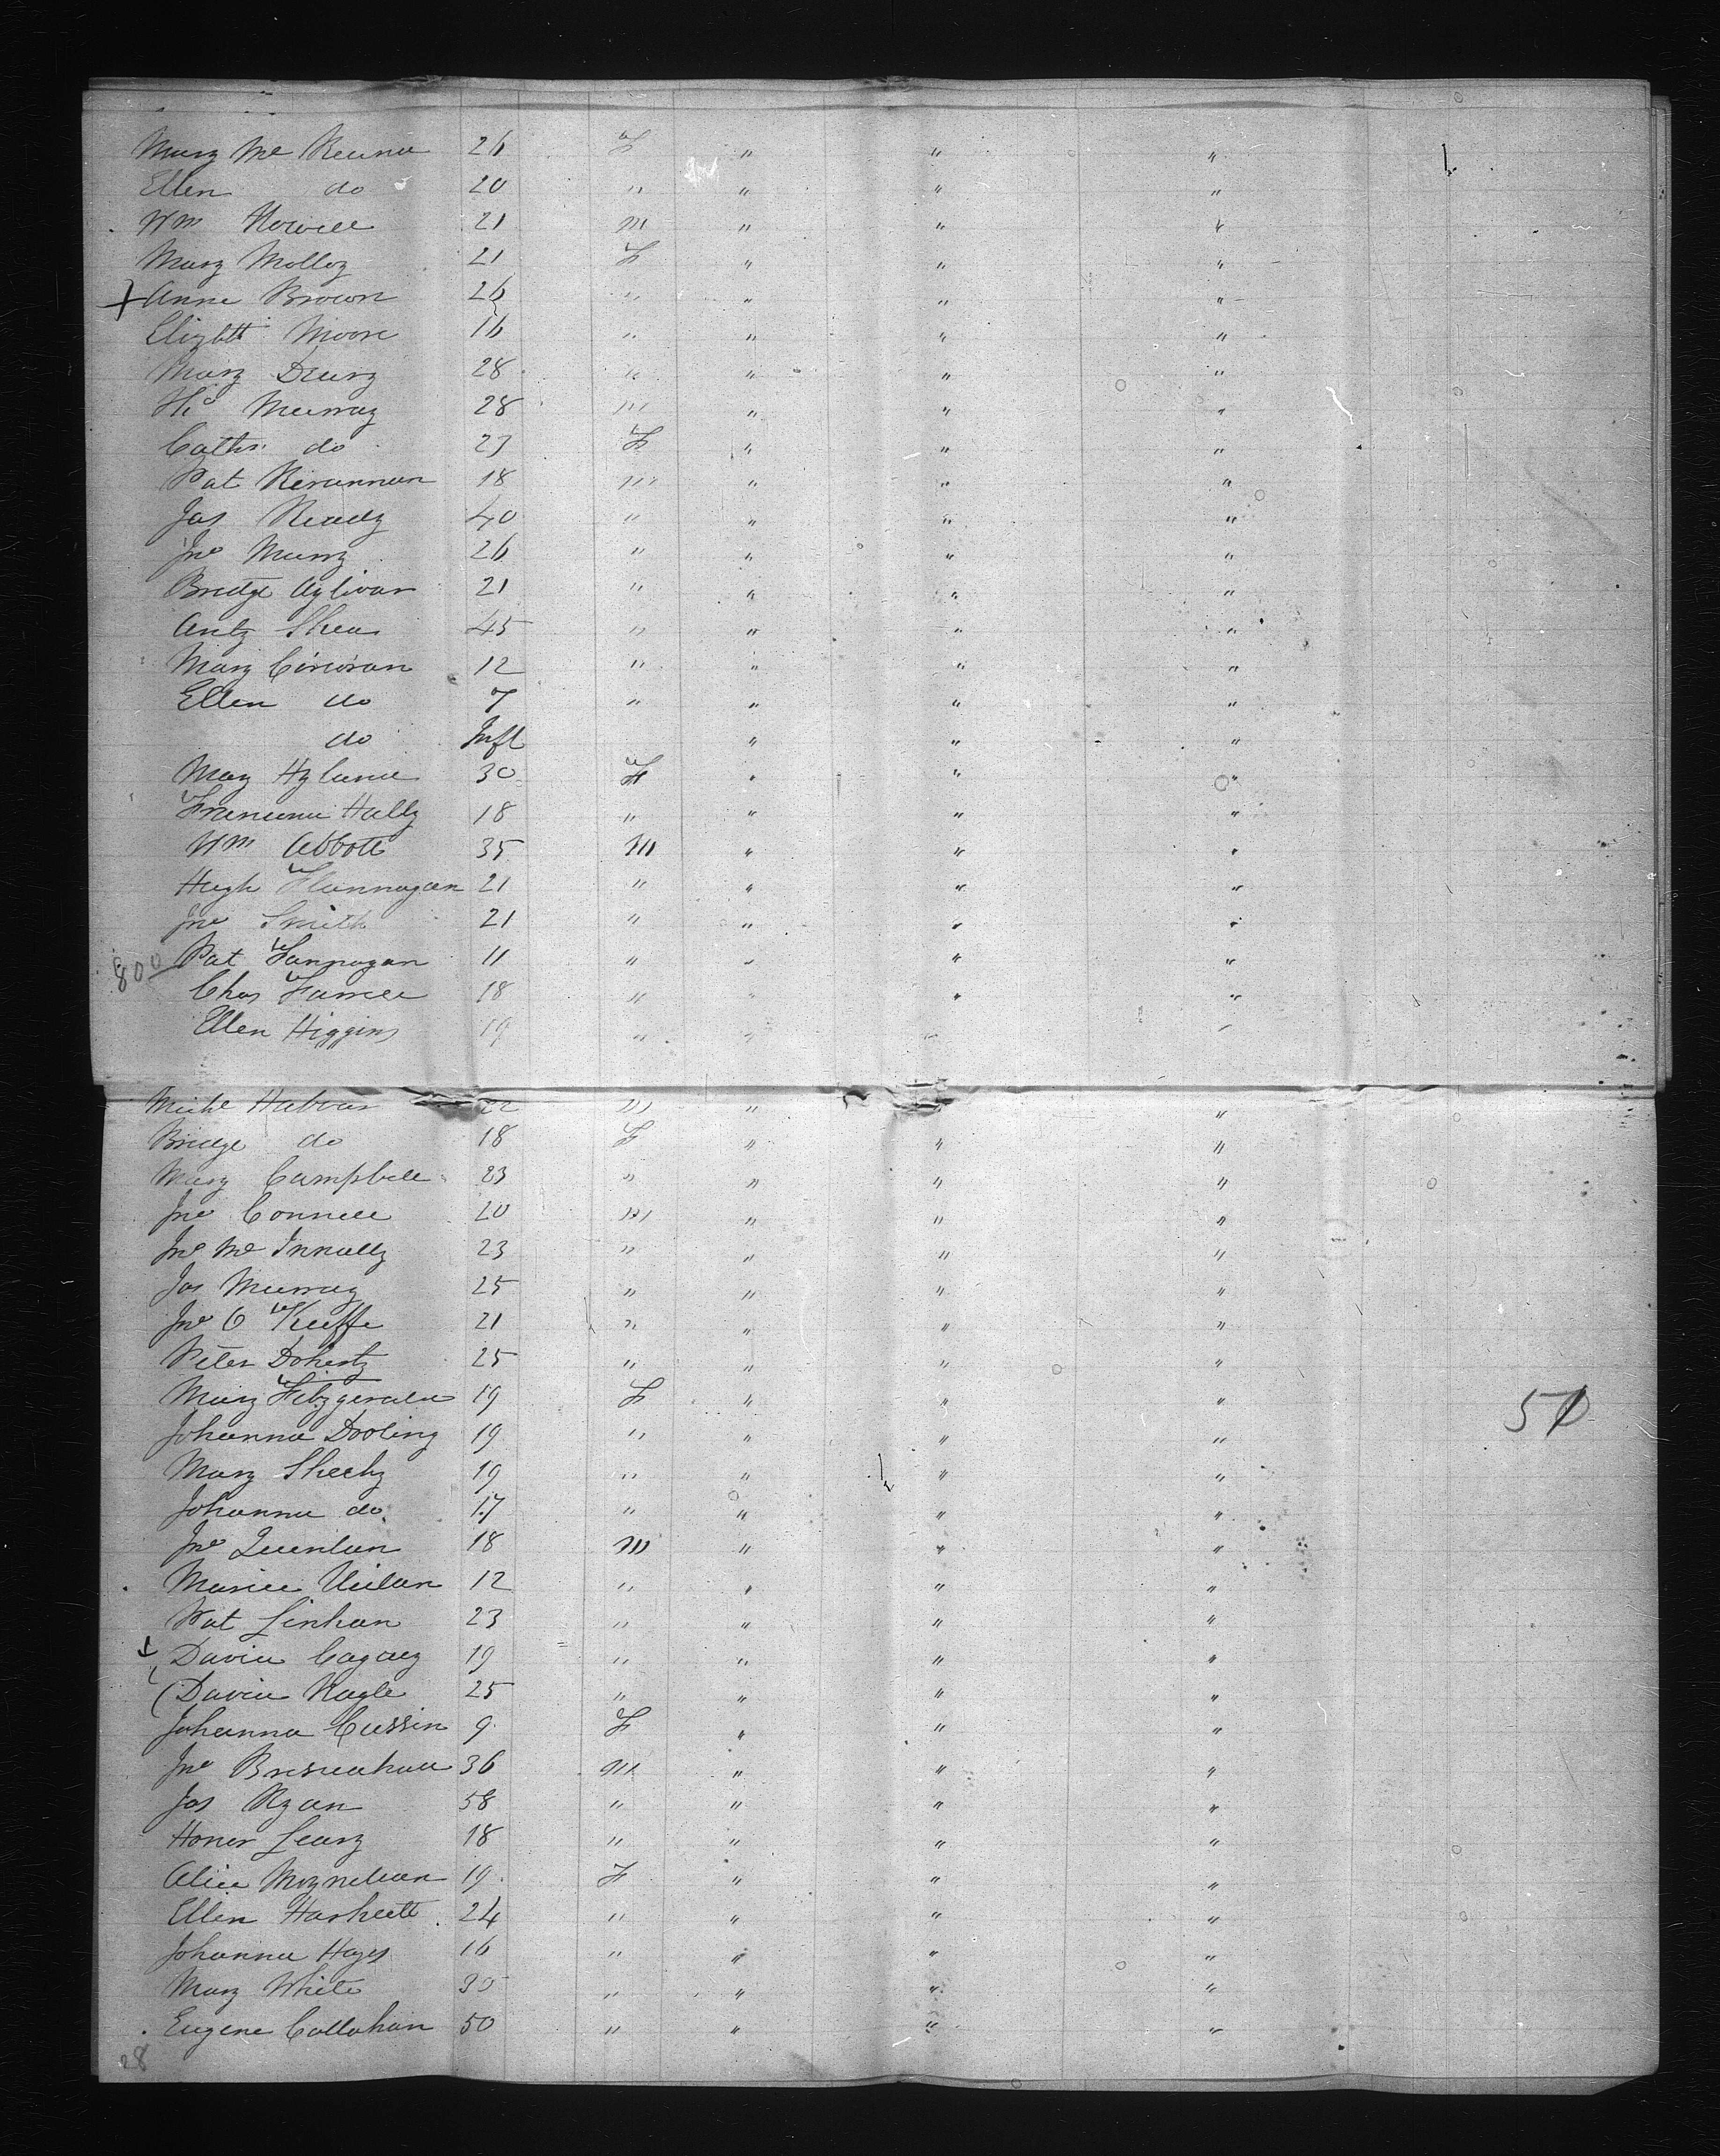 Mary Mc Kenna 26 F " " "
Ellen do 20 " " " "
Wm Howell 21 M " " "
Mary Molloy 21 F " " "
Anne Brown 26 " " " "
Elizbth Moore 16 " " " "
Mary Drury 28 " " " "
Murray 28 M " " "
Cathr do 23 F " " "
Pat 18 M " " "
Jas Ready 40 " " " "
Jno 26 " " " "
Bridge 21 " " " "
Anty Shea 45 " " " "
Mary Corcoran 12 " " " "
Ellen do 7 " " " "
do Inft " " "
Mary Hyland 30 F " " "
Hally 18 " " " "
Wm Abbott 35 M " " "
Hugh Flannagan 21 " " " "
Jno Smith 21 " " " "
800 Pat Fannagan 11 " " " "
Chas Farrell 18 " " " "
Ellen Higgins 19 " " " "
Michl 22 M " "
Bridge do 18 F " " "
Mary Campbell 23 " " " "
Jno Connell 20 M " " "
Jno Mc Innally 23 " " " "
Jas Murray 25 " " " "
Jno O Keeffe 21 " " " "
Peter Doherty 25 " " " "
Mary Fitzgerald 19 F " " "
51
Johanna Dooling 19 " " " "
Mary Sheehy 19 " " " "
Johanna do 17 " " " "
Jno Quinlan 18 M " " "
12 " " " "
Pat Linhan 23 " " " "
David 19 " " " "
David Nagle 25 " " " "
Johanna Cussin 9 F " " "
Jno Bresnahan 36 M " " "
Jas Ryan 58 " " " "
Honor Leary 18 " " " "
Alice Moynehan 19 F " " "
Ellen Hackett 24 " " " "
Johanna Hays 16 " " " "
Mary White 35 " " " "
Eugene Callahan 50 " " " "
28